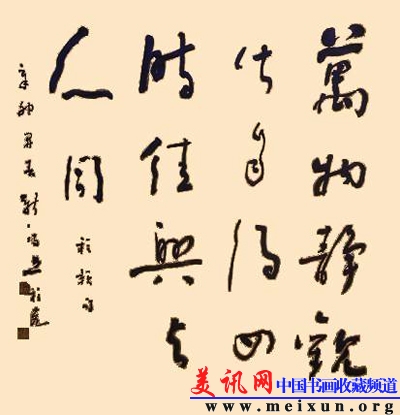 萬物靜觀
皆自得四
時佳興与
人同
美讯网 中国书画收藏频道
www.meixun.org